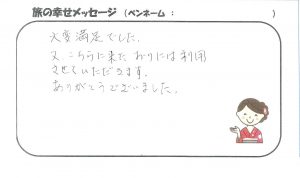 旅の幸せメッセージ (ペンネーム : )
大変満足でした.
又、こちらに来た おりには利用
させていただきます.
ありがとうございました.